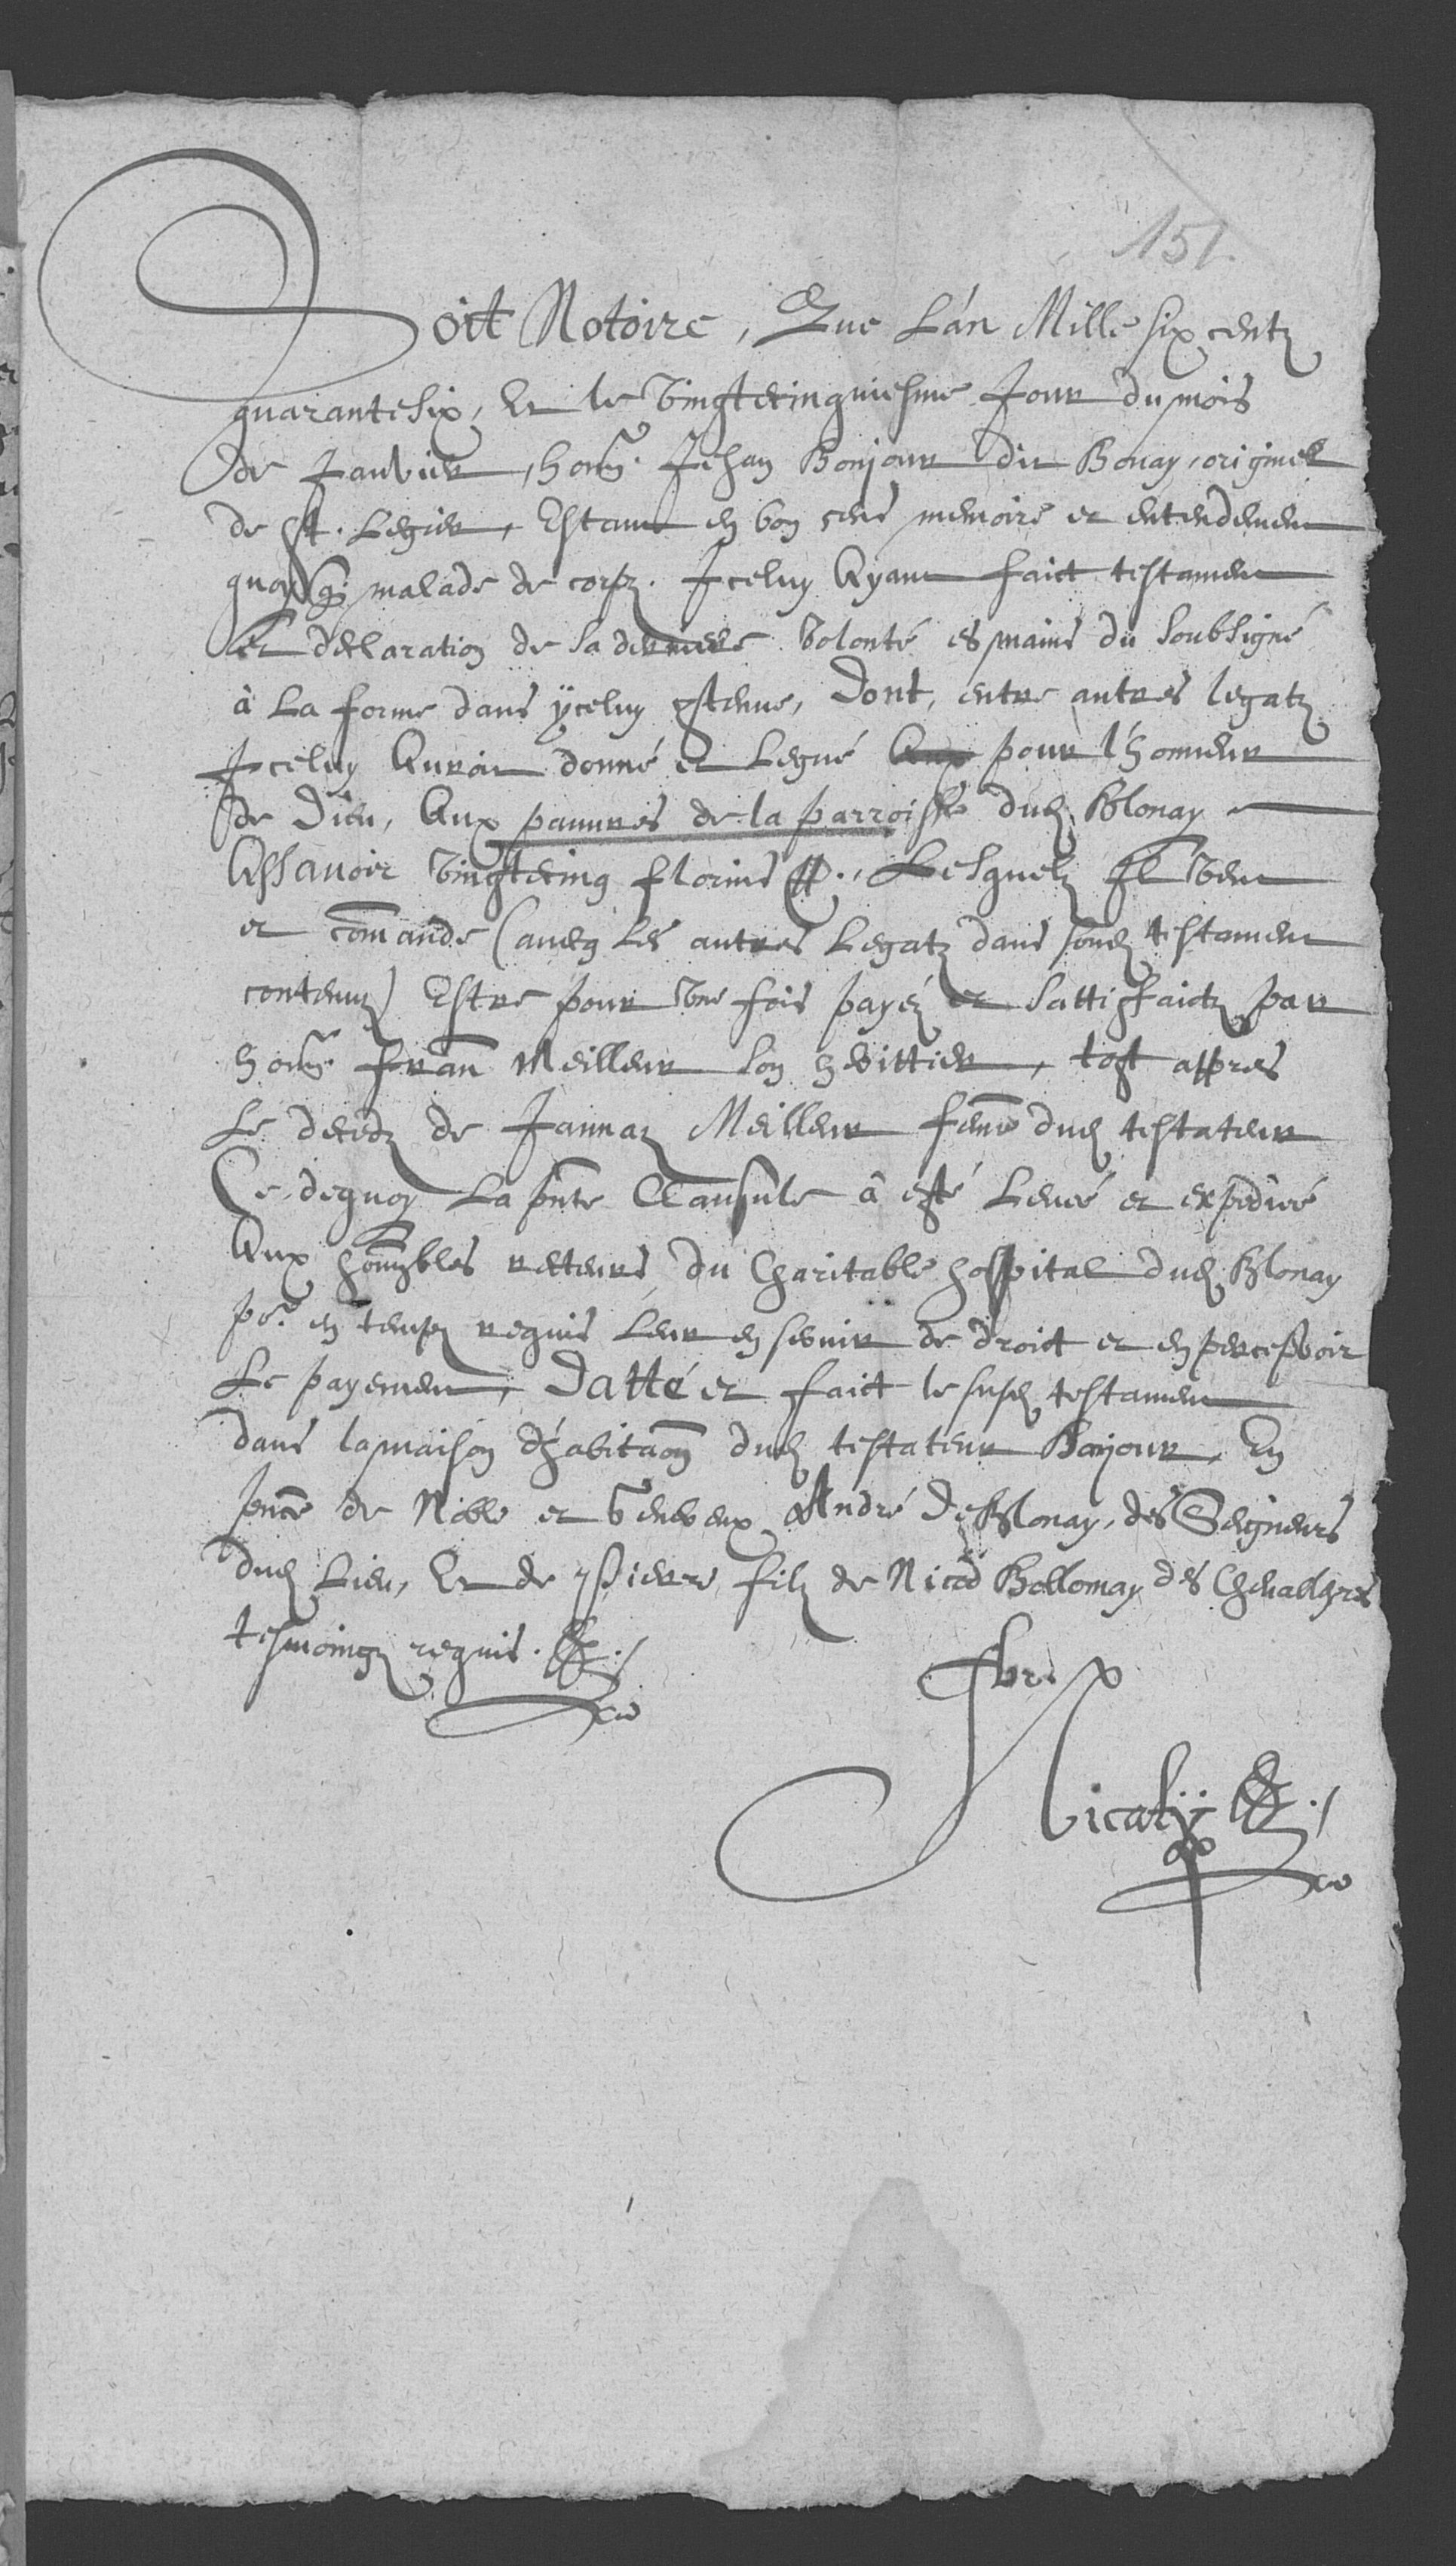 151.
Soit Notoire, Que L'an Mille six centz
quarantesix, Et le Vingtecinquiesme Jour du mois
de Januier, hon. Jehan Bonjour dit Bonay, originel
de St. Legier, Estant en bon sens memoire et entendement
quoyq. malade de corps. Iceluy Ayant faict testament
Et declaration de sa derniere Volonté es mains du soubsigné
à La forme dans yceluy contenue, Dont, entre autres legatz
Iceluy Auroit donné et Legué pour l'honneur
de Dieu, Aux pauures de la parroisse dud. Blonay
Assauoir Vingtecinq florins pp., Lesquelz Il Veut
et commande (aueq Les autres Legatz dans sond. testament
contenuz) Estre pour Vne fois payéz et sattisfaictz par
hon. Fran Meilleur son herittier, tost appres
Le decedz de Jannaz Meilleur feme dud. testateur
Ce dequoy La pnte Clausule à esté Leueé et expedieé
Aux honnbles recteurs du Charitable hospital dud. Blonay
po.r en temps requis Leur en seruir de droict et en percepvoir
Le payement, Datté et faict le susd. testament
dans la maison d'habitaon dud. testateur Bonjour, En
pnce de Noble et Genereux André De Blonay, des Seigneurs
dud. Lieu, Et de Pierre filz de Nicod Bollomay des Cheualleyres
tesmoingz requis. &./